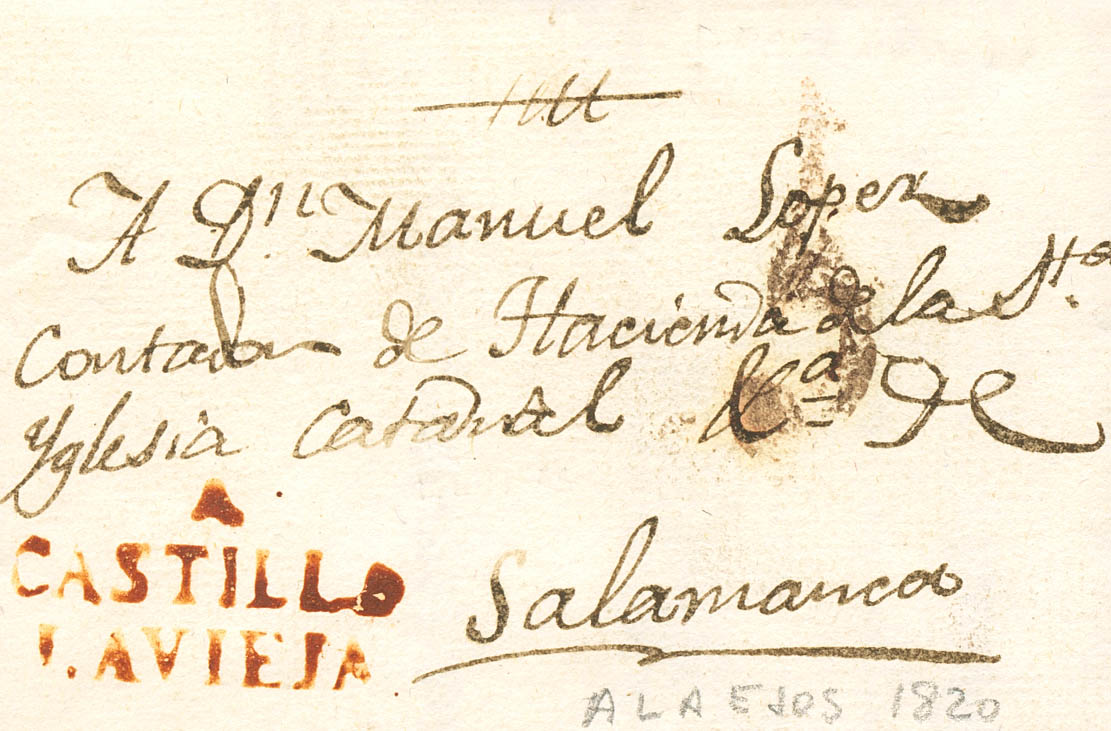 A Dn. Manuel Lopez
Contador de Hacienda de la Sta.
Yglesia Catedral de
Salamanca
A
CASTILLO
L AVIEJA
ALAEJOS 1820